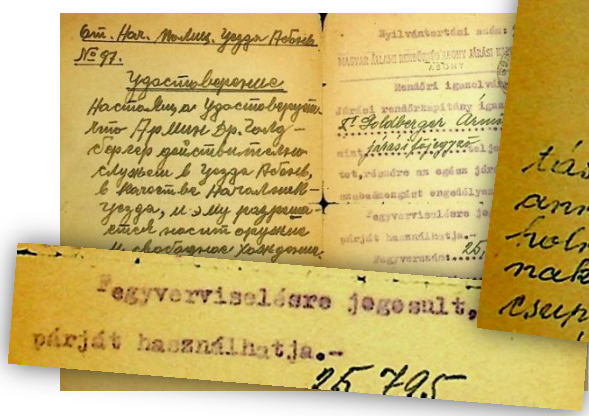 От. Нач. Полиц. Уезда Абонь
№ 97.
Удостоверение
Настоящ.а Удостоверует
Что Армин Др. Голд-
бергер действително
служем в Уезда Абонь,
в качестве Началник
уезда, и эму разреша-
ется носит оружие
и свободное хождение.
Nyilvántartási szám:
MAGYAR ÁLLAMI RENDŐRSÉG ABONY JÁRÁSI
ABONY
Rendőri igazolvány
Járási rendőrkapitány igaz
Dr Goldberger Ármi
mint járási főjegyző telje
tot, részére az egész jár
szabadmozgást engedélyez
Fegyverviselésre jo
párját használhatja.-
Fegyverszám: 25,
Fegyverviselésre jogosult,
párját használhatja.-
25 795
tás
ann
holn
nak
csup